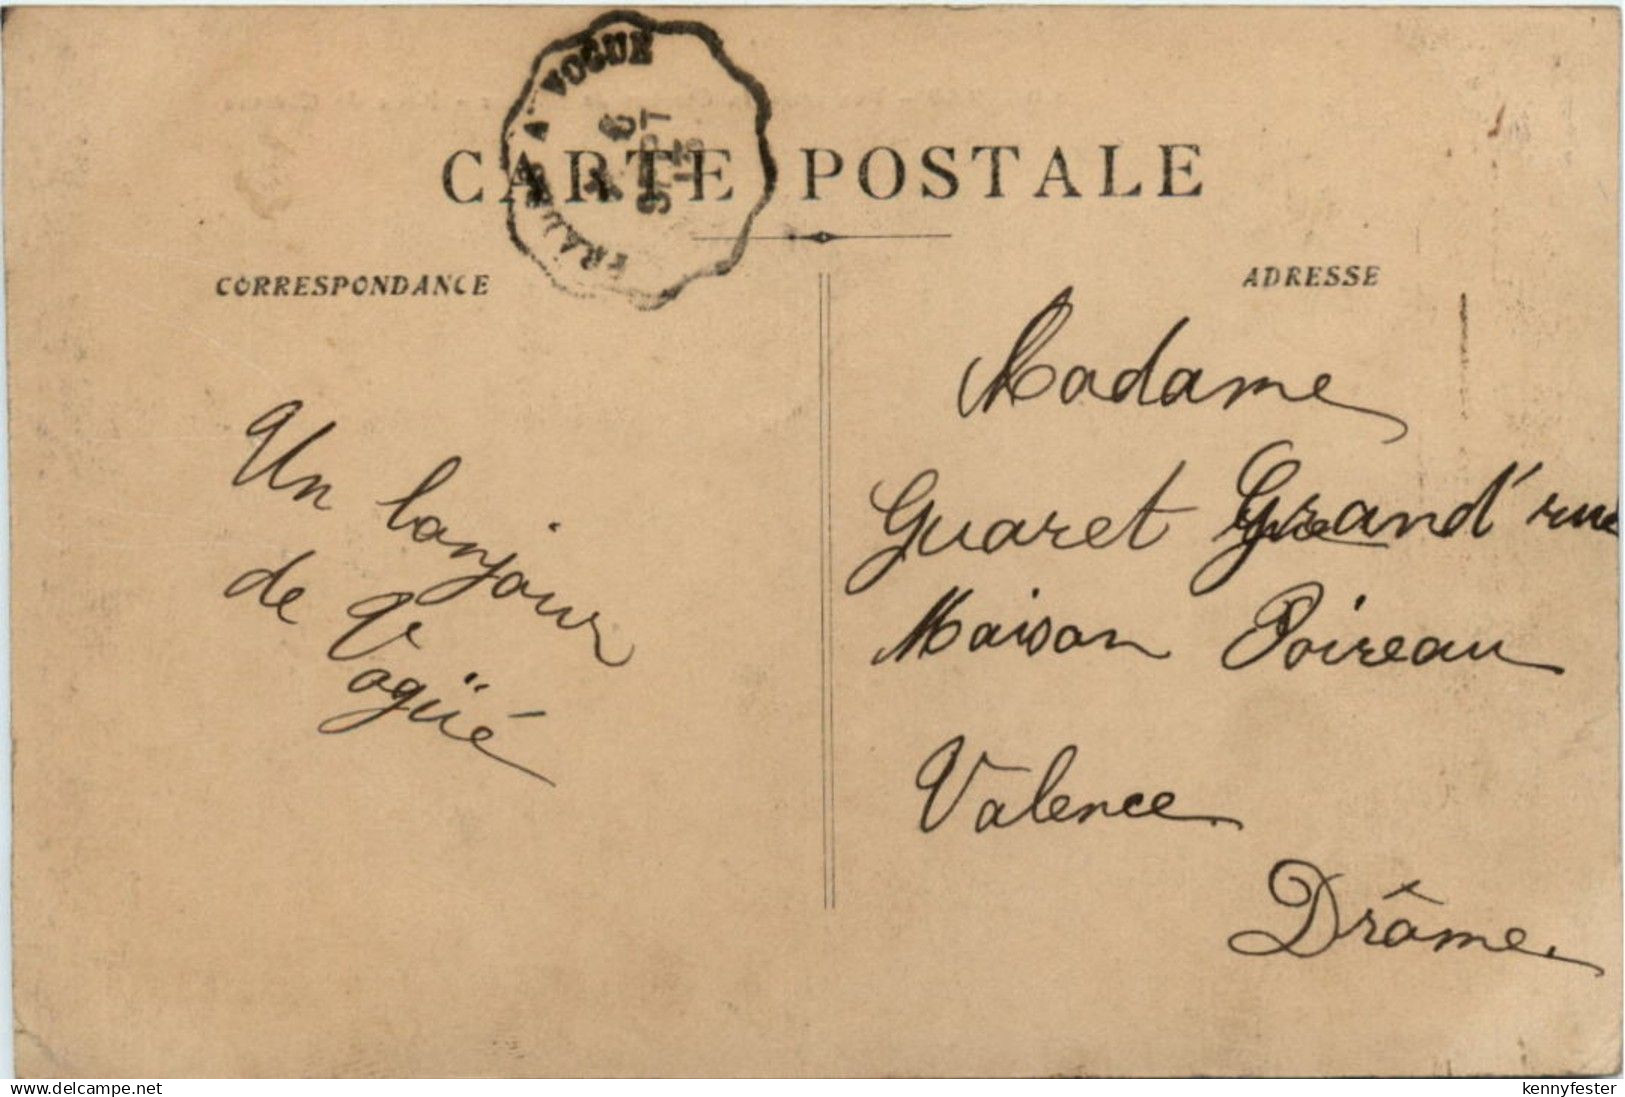 CARTE POSTALE
A VOGUE
6
SEPT
CORRESPONDANCE
ADRESSE
Un bonjour
de Vogüé
Madame
Guaret Grand'rue
Maison Poireau
Valence
Drâme.
www.delcampe.net
kennyfester